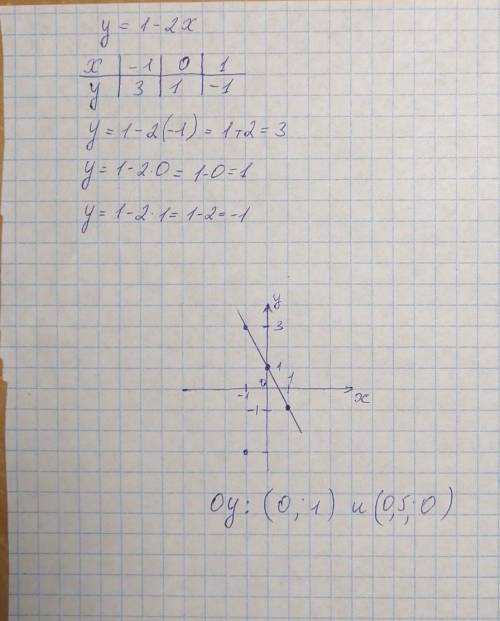 y = 1 - 2x
x | -1 | 0 | 1
y | 3 | 1 | -1
y = 1 - 2(-1) = 1+2 = 3
y = 1 - 2·0 = 1-0=1
y = 1 - 2·1 = 1-2=-1
y
3
1
-1 1 x
-1
Oy: (0; 1) и (0,5; 0)